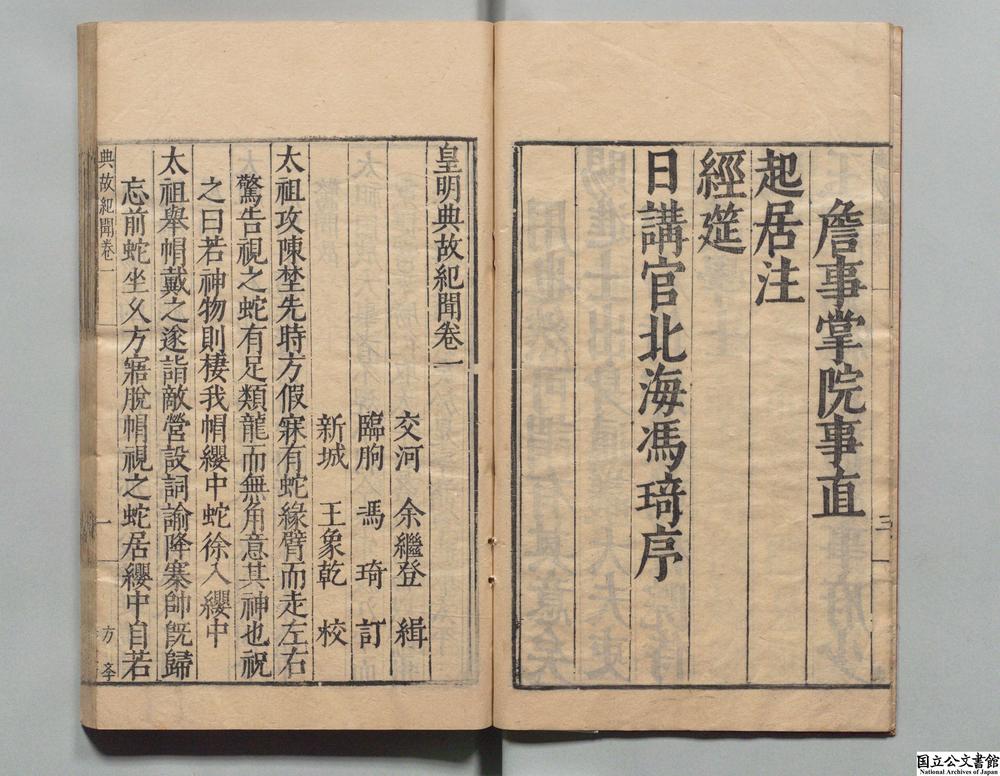 詹事掌院事直
起居注
經筵
日講官北海馮琦序
三
皇明典故紀聞卷一
交河 余繼登 緝
臨朐 馮琦 訂
新城 王象乾 校
太祖攻陳埜先時方假寐有蛇緣臂而走左右
驚告視之蛇有足類龍而無角意其神也祝
之曰若神物則棲我帽纓中蛇徐入纓中
太祖舉帽戴之遂詣敵營設詞諭降寨帥旣歸
忘前蛇坐乆方寤脫帽視之蛇居纓中自若
典故紀聞卷一
一
国立公文書館
National Archives of Japan